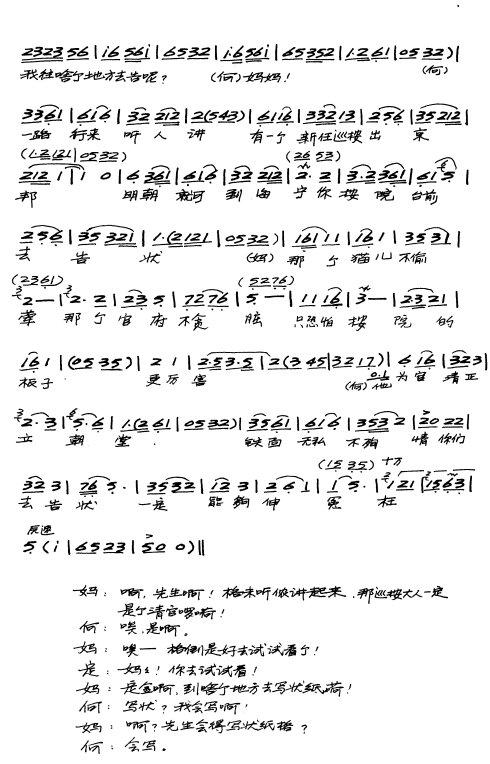 23235 6 | i6 56i | 6532 | i·656i | 6535 2 | 1·2 61 | 05 32) |
我往啥个地方去告呢？ (何) 妈妈！ (何)
3361 | 616 | 32 212 | 2(543) | 6116 | 332 13 | 256 | 35 212 |
一路 行来 听 人 讲 有一个 新任巡按 出 京
(1·2121 | 0532) (26 53)
212 1 | 1 0 | 6 361 | 616 | 32 212 | 2·2 | 3·2361 | 61 5 |
邦 明朝 就可 到 海 宁你 按 院 台前
256 | 35 321 | 1·(2121 | 0532) | 161 11 | 161 | 35 31 |
去 告 状 (妈) 那 个 猫儿 不偷
(2361) (5276)
2 — | 2·2 | 235 | 7276 | 5 — | 11 16 | 3 — | 2321 |
荤 那个 官府 不贪 赃 只恐怕 按 院 的
16 1 | (05 35) | 2 1 | 2·53·5 | 2(3 45 | 32 17) | 6 16 | 323 |
板子 更厉害 (何) 他 为官 清正
2·3 | 5·6 | 1·(2 61 | 0532) | 3561 | 616 | 353 2 | 20 22 |
立 朝 堂 铁面 无私 不徇 情你们
(15 35) 十万
323 | 76 5· | 3532 | 12 3 | 2 6 1 | 1 5· | 121 | 1563 |
去告状 一定 能够 伸 冤 枉
5 (i | 6523 | 50 0) ||
妈：啊，先生啊！格末听侬讲起来，那巡按大人一定
是个清官啰嗬！
何：唉，是啊。
妈：噢一 格倒是好去试试看个！
是：妈么！你去试试看！
妈：是金啊，到啥个地方去写状纸嗬！
何：写状？我会写啊！
妈：啊？先生会得写状纸格？
何：会写。